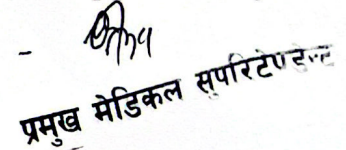 -
प्रमुख मेडिकल सुपरिटेण्डेन्ट